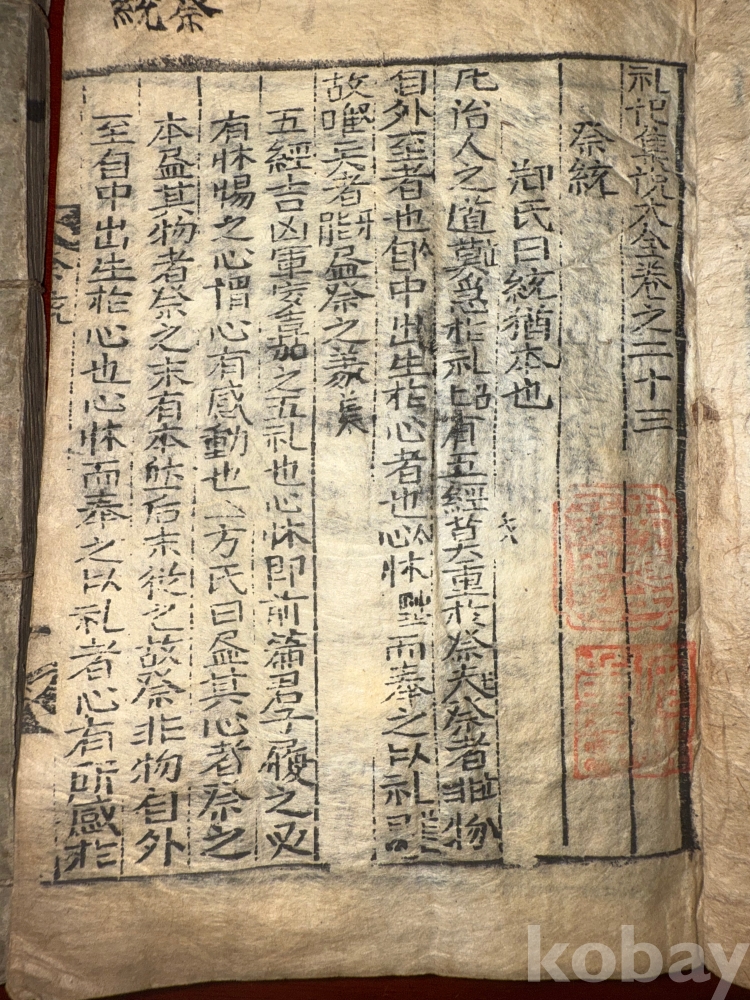 祭統
礼記集說大全卷之二十三
祭統
鄭氏曰統猶本也
凡治人之道莫急於礼礼有五經莫重於祭夫祭者非物
自外至者也自中出生於心者也心怵而奉之以礼是
故唯贤者能尽祭之义
五經吉凶軍宾嘉之五礼也心怵即前篇君子履之必
有怵惕之心謂心有感動也方氏曰尽其心者祭之
本尽其物者祭之末有本然后末從之故祭非物自外
至自中出生於心也心怵而奉之以礼者心有所感於
kobay